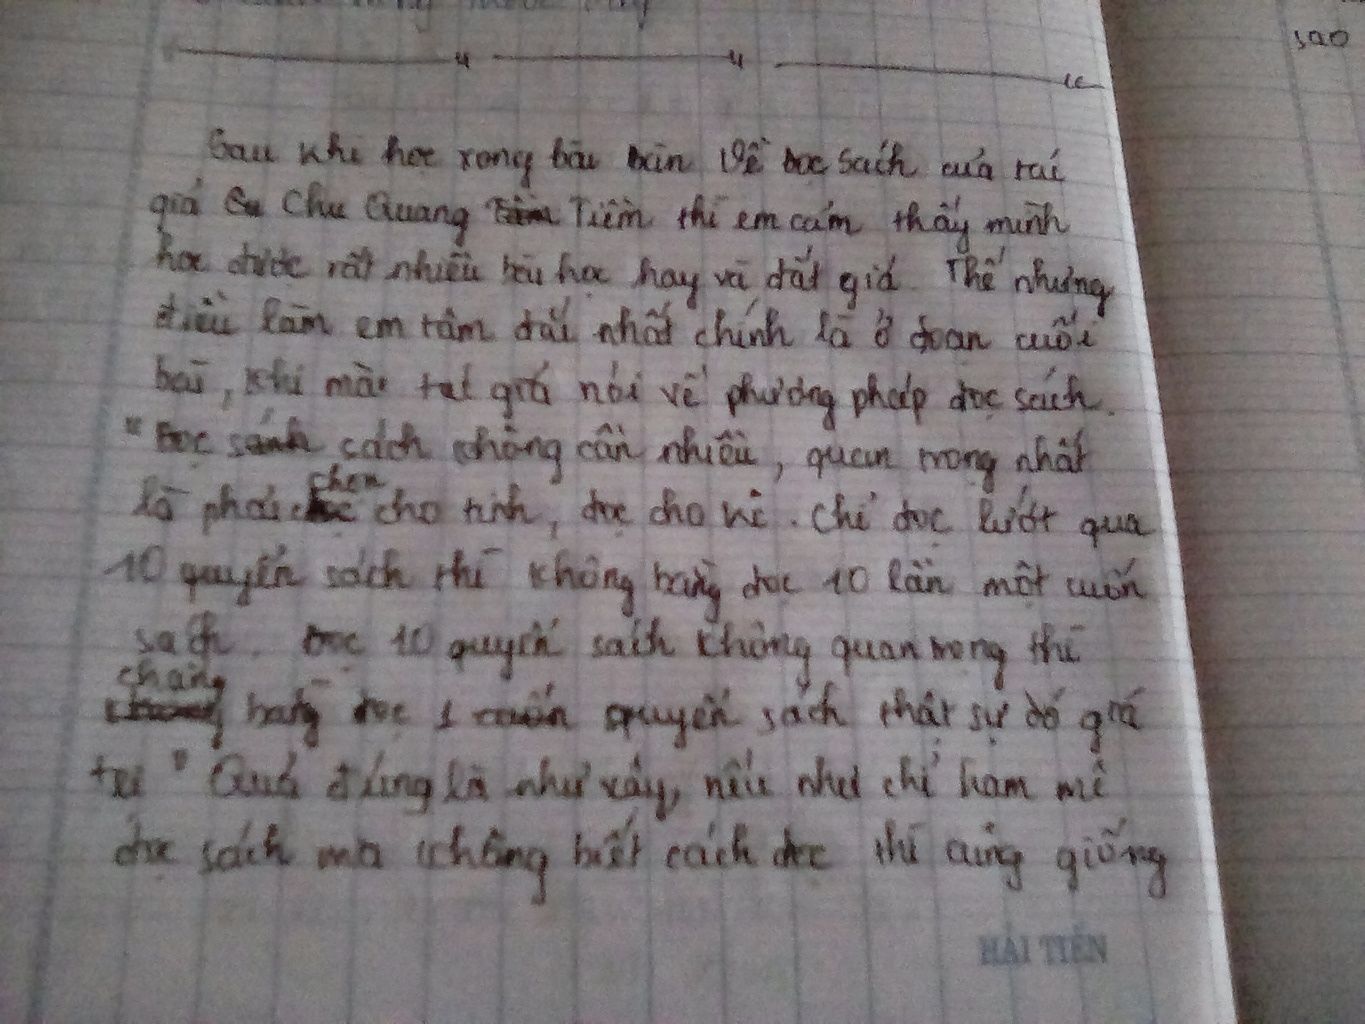 sao
Sau khi học xong bài bàn về đọc sách của tác
giả Chu Quang Tiềm thì em cảm thấy mình
học được rất nhiều bài học hay và đắt giá. Thế nhưng
điều làm em tâm đắc nhất chính là ở đoạn cuối
bài, khi mà tác giả nói về phương pháp đọc sách.
"Đọc sách không cần nhiều, quan trọng nhất
là phải chọn cho tinh, đọc cho kĩ. Chỉ đọc lướt qua
10 quyển sách thì không bằng đọc 10 lần một cuốn
sách. Đọc 10 quyển sách không quan trọng thì
chẳng bằng đọc 1 quyển sách thật sự có giá
trị" Quả đúng là như vậy, nếu như chỉ ham mê
đọc sách mà không biết cách đọc thì cũng giống
HẢI TIẾN